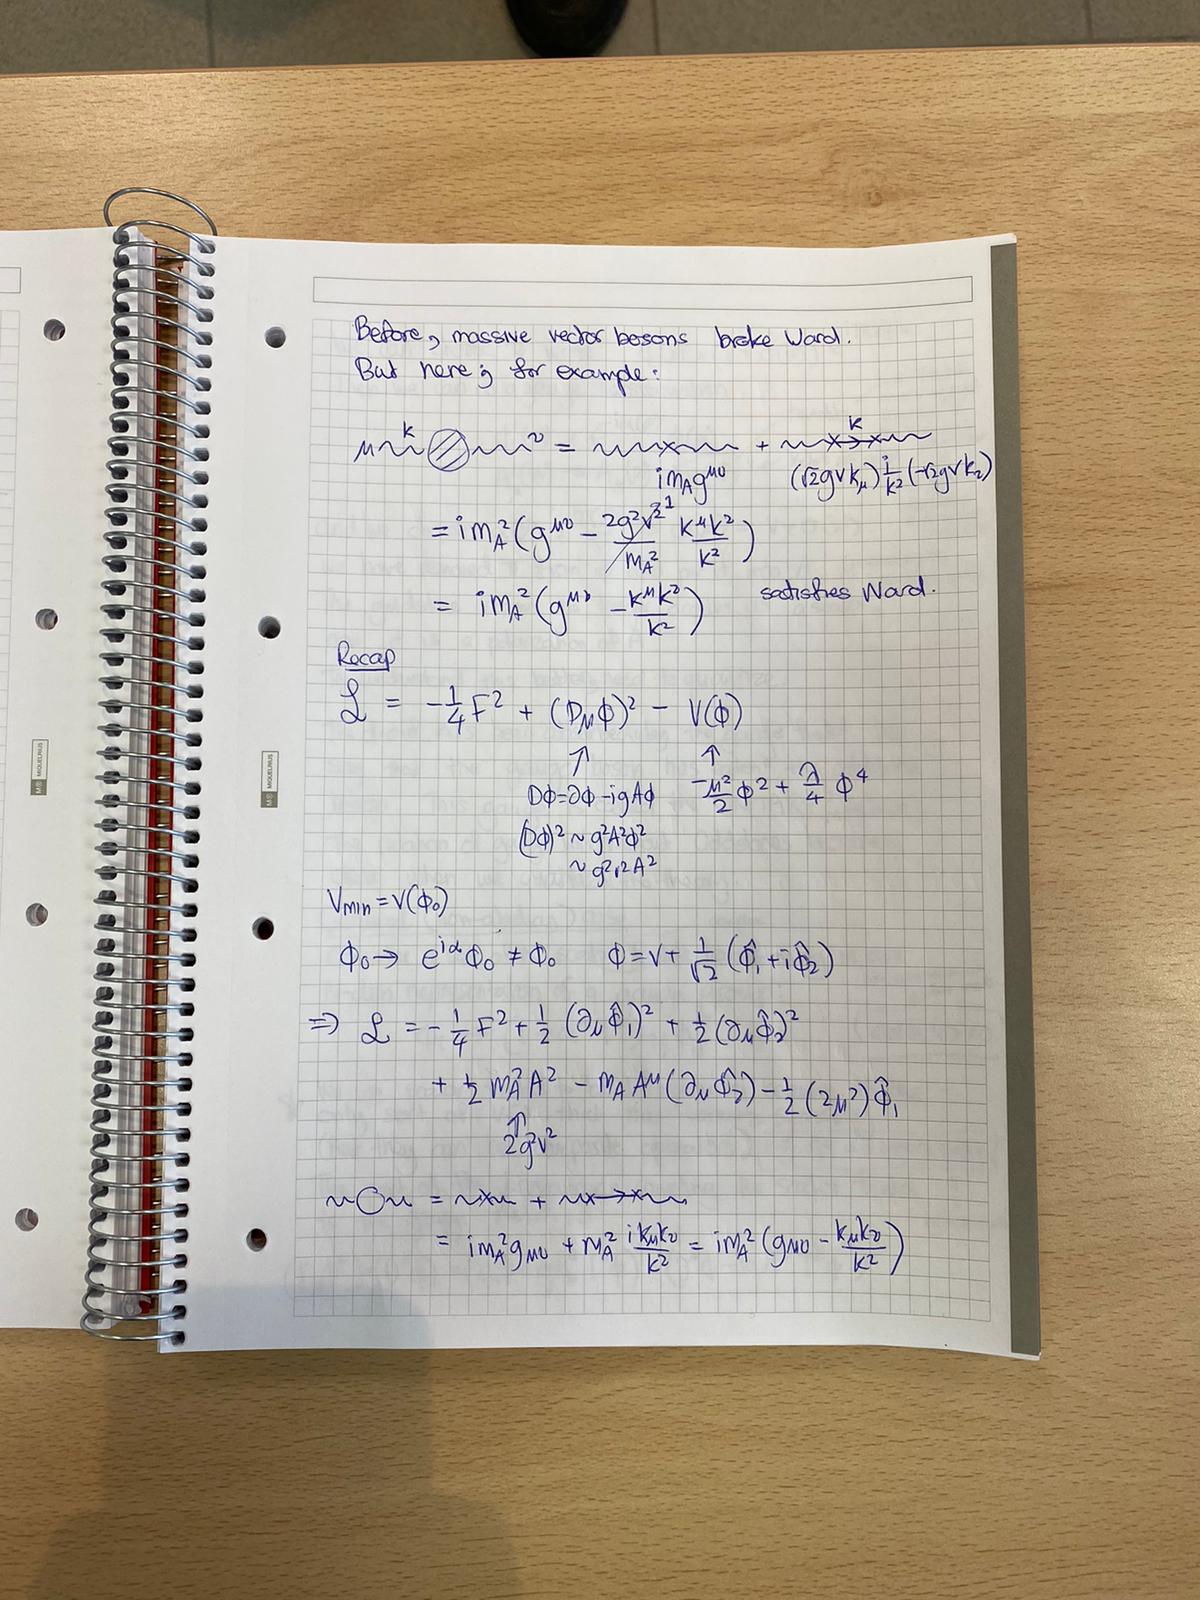 Before, massive vector bosons broke Ward.
But here, for example:
μ k ν = + k
i m_A g^{μν} (√2 g v k_μ) i/k² (-√2 g v k_ν)
= i m_A² (g^{μν} - 2g²v²/m_A² k^μ k^ν/k²) 1
= i m_A² (g^{μν} - k^μ k^ν/k²) satisfies Ward.
Recap
ℒ = -1/4 F² + (D_μ ϕ)² - V(ϕ)
↑ ↑
Dϕ = ∂ϕ - igAϕ -μ²/2 ϕ² + λ/4 ϕ⁴
(Dϕ)² ~ g²A²ϕ²
~ g²v²A²
V_min = V(ϕ₀)
ϕ₀ → e^{iα} ϕ₀ ≠ ϕ₀ ϕ = v + 1/√2 (ϕ̂₁ + iϕ̂₂)
⇒ ℒ = -1/4 F² + 1/2 (∂_μ ϕ̂₁)² + 1/2 (∂_μ ϕ̂₂)²
+ 1/2 m_A² A² - m_A A^μ (∂_μ ϕ̂₂) - 1/2 (2μ²) ϕ̂₁
↑
2g²v²
= +
= i m_A² g_{μν} + m_A² i k_μ k_ν/k² = i m_A² (g_{μν} - k_μ k_ν/k²)
M® MIQUELRIUS
M® MIQUELRIUS